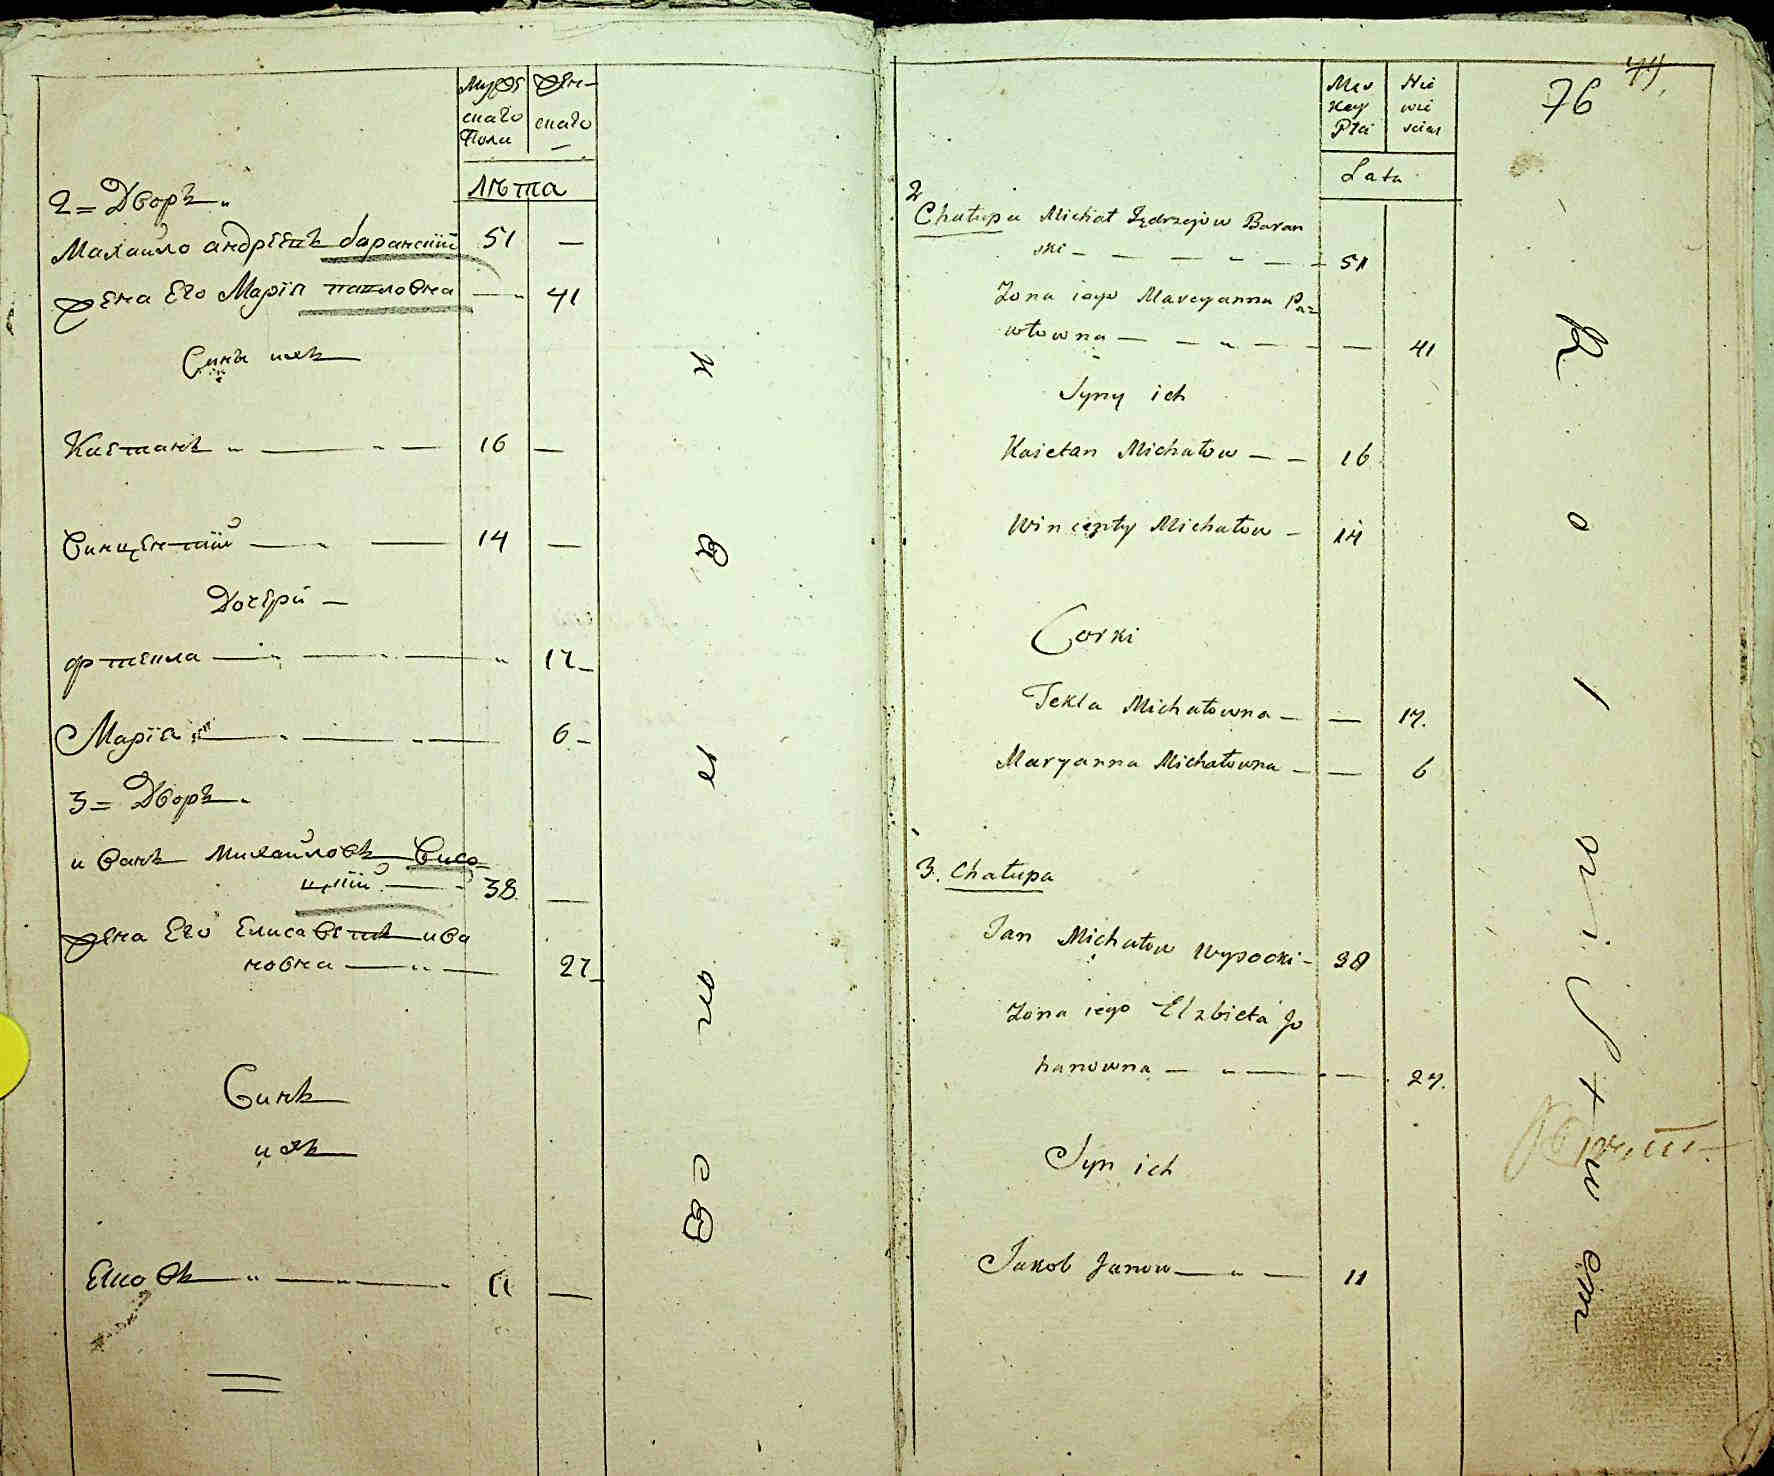 Мужескаго Пола
Женскаго
Лѣта
2 = Дворъ
Махайло андрїевъ баранскїй 51 —
Жена Его Марїя павловна — 41
Сины ихъ
Каетанъ 16 —
Винцентїй 14 —
Дочери
Фтекла 17
Марїа 6
3 = Дворъ
иванъ Михайловъ Висо=
цкїй 38 —
Жена Его Елисаветъ ива
новна 27
Синъ
ихъ
Яковъ 11 —
76
Lata
2
Chałupa Michał Jędrzejów Baran
ski 51
Zona iego Maryanna Pa=
włowna — 41
Syny ich
Kaietan Michałow 16
Wincenty Michałow 14
Corki
Tekla Michałowna — 17.
Maryanna Michałowna — 6
3. Chałupa
Jan Michałow Wysocki 38
Zona iego Elzbieta Jo
hanowna 27.
Syn ich
Jakob Janow 11